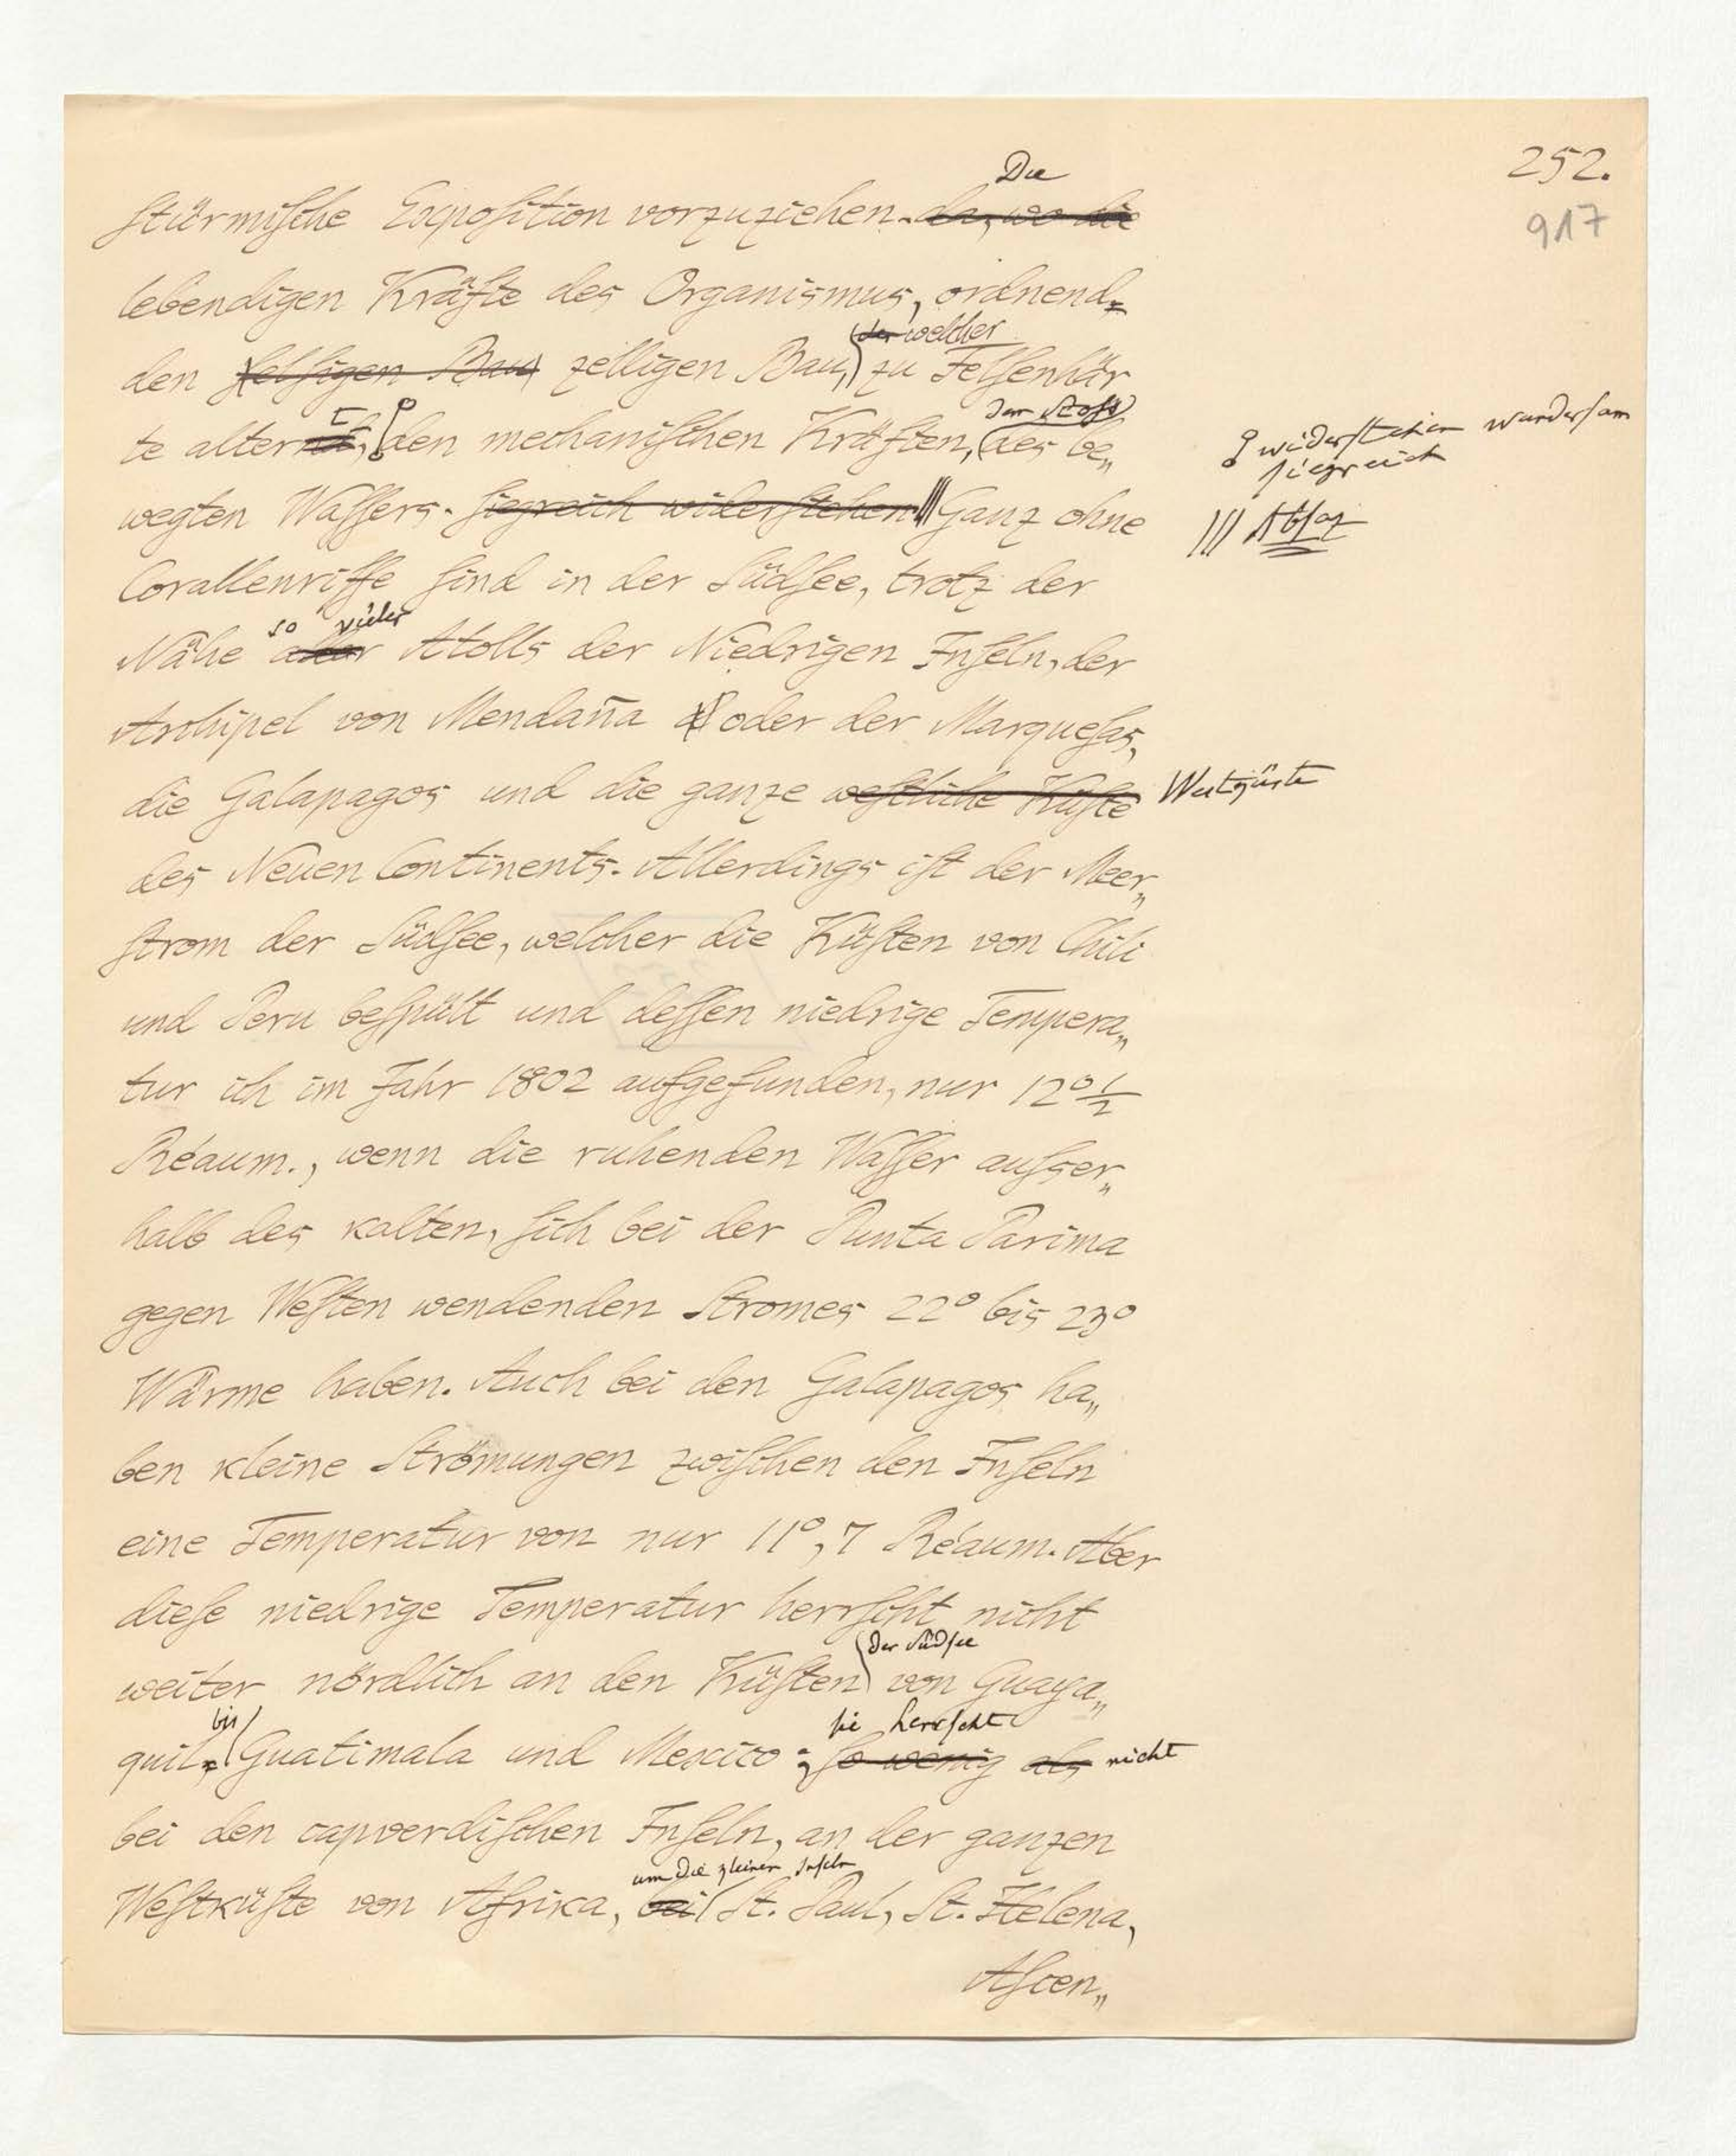 252.
917
Die
stürmische Exposition vorzuziehen. da, wo die
lebendigen Kräfte des Organismus, ordnend
der welcher
den felsigen Bau zelligen Bau, zu Felsenhär
dem Stoß
te altert, den mechanischen Kräften, des be„
widerstehen wundersam
siegreich
wegten Wassers. siegreich widerstehen Ganz ohne
||| Absaz
Corallenriffe sind in der Südsee, trotz der
so vieler
Nähe aller Atolls der Niedrigen Inseln, der
Archipel von Mendaña oder der Marquesas,
die Galapagos und die ganze westliche Küste Westküste
des Neuen Continents. Allerdings ist der Meer„
strom der Südsee, welcher die Küsten von Chili
und Peru bespült und dessen niedrige Tempera„
tur ich im Jahr 1802 aufgefunden, nur 12° 1/2
Réaum., wenn die ruhenden Wasser ausser„
halb des kalten, sich bei der Punta Parima
gegen Westen wendenden Stromes 22° bis 23°
Wärme haben. Auch bei den Galapagos ha„
ben kleine Strömungen zwischen den Inseln
eine Temperatur von nur 11°,7 Réaum. Aber
diese niedrige Temperatur herrscht nicht
der Südsee
weiter nördlich an den Küsten von Guaya„
bis sie herrscht
quil, Guatimala und Mexico; so wenig als nicht
bei den capverdischen Inseln, an der ganzen
um die kleinen Inseln
Westküste von Afrika, bei St. Paul, St. Helena,
Ascen„